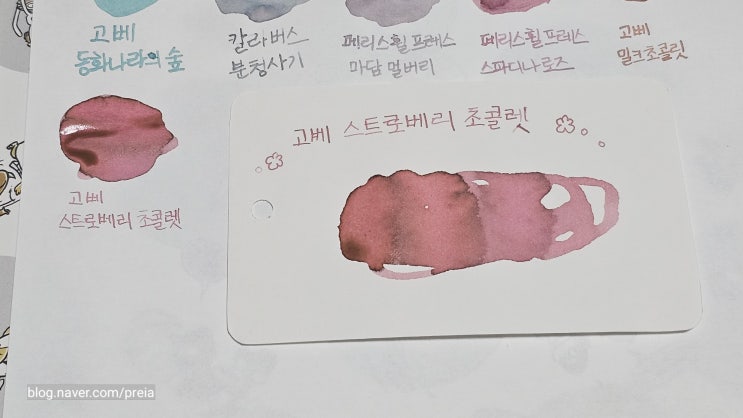 고베
동화나라의 숲
칼라버스
분청사기
페리스휠 프레스
마담 멀버리
페리스휠 프레스
스파디나 로즈
고베
밀크초콜릿
고베 스트로베리 초콜렛
고베
스트로베리 초콜렛
blog.naver.com/preia